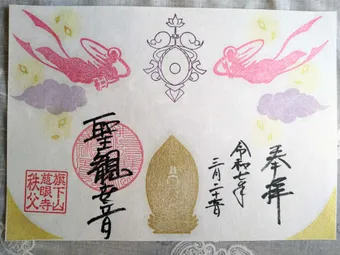 奉拝
令和七年
三月二十
聖観世音
旗下山
慈眼寺
秩父